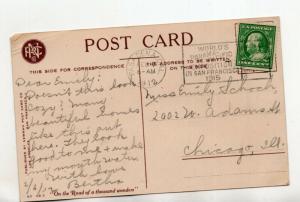 POST CARD
THIS SPACE FOR CORRESPONDENCE
THE ADDRESS TO BE WRITTEN ON THIS SIDE
WORLD'S
PANAMA-PACIFIC
EXPOSITION
IN SAN FRANCISCO
1915
AM
Dear Emily:
Doesn't this look
cozy? Many
beautiful homes
like this out
here. They look
good to me & make
my mouth water
With love
Bertha
2/6/
Miss Emily Schoch
2002 W. Adams St
Chicago, Ill.
"On the Road of a thousand wonders"